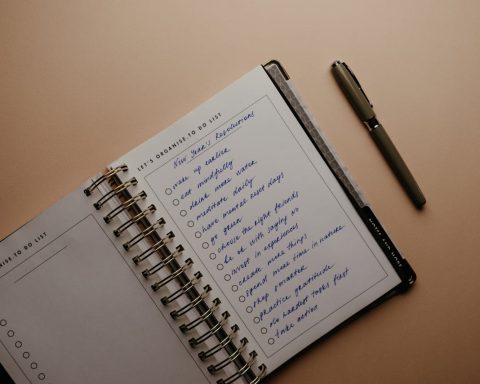 LET'S ORGANISE.TO DO LIST
New Year's Resolutions
wake up earlier
eat mindfully
drink more water
meditate daily
have mental reset days
go green
choose the right friends
be ok with saying no
invest in experiences
create more things
spend more time in nature
shop smarter
practice gratitude
do hardest tasks first
take action
NISE.TO DO LIST